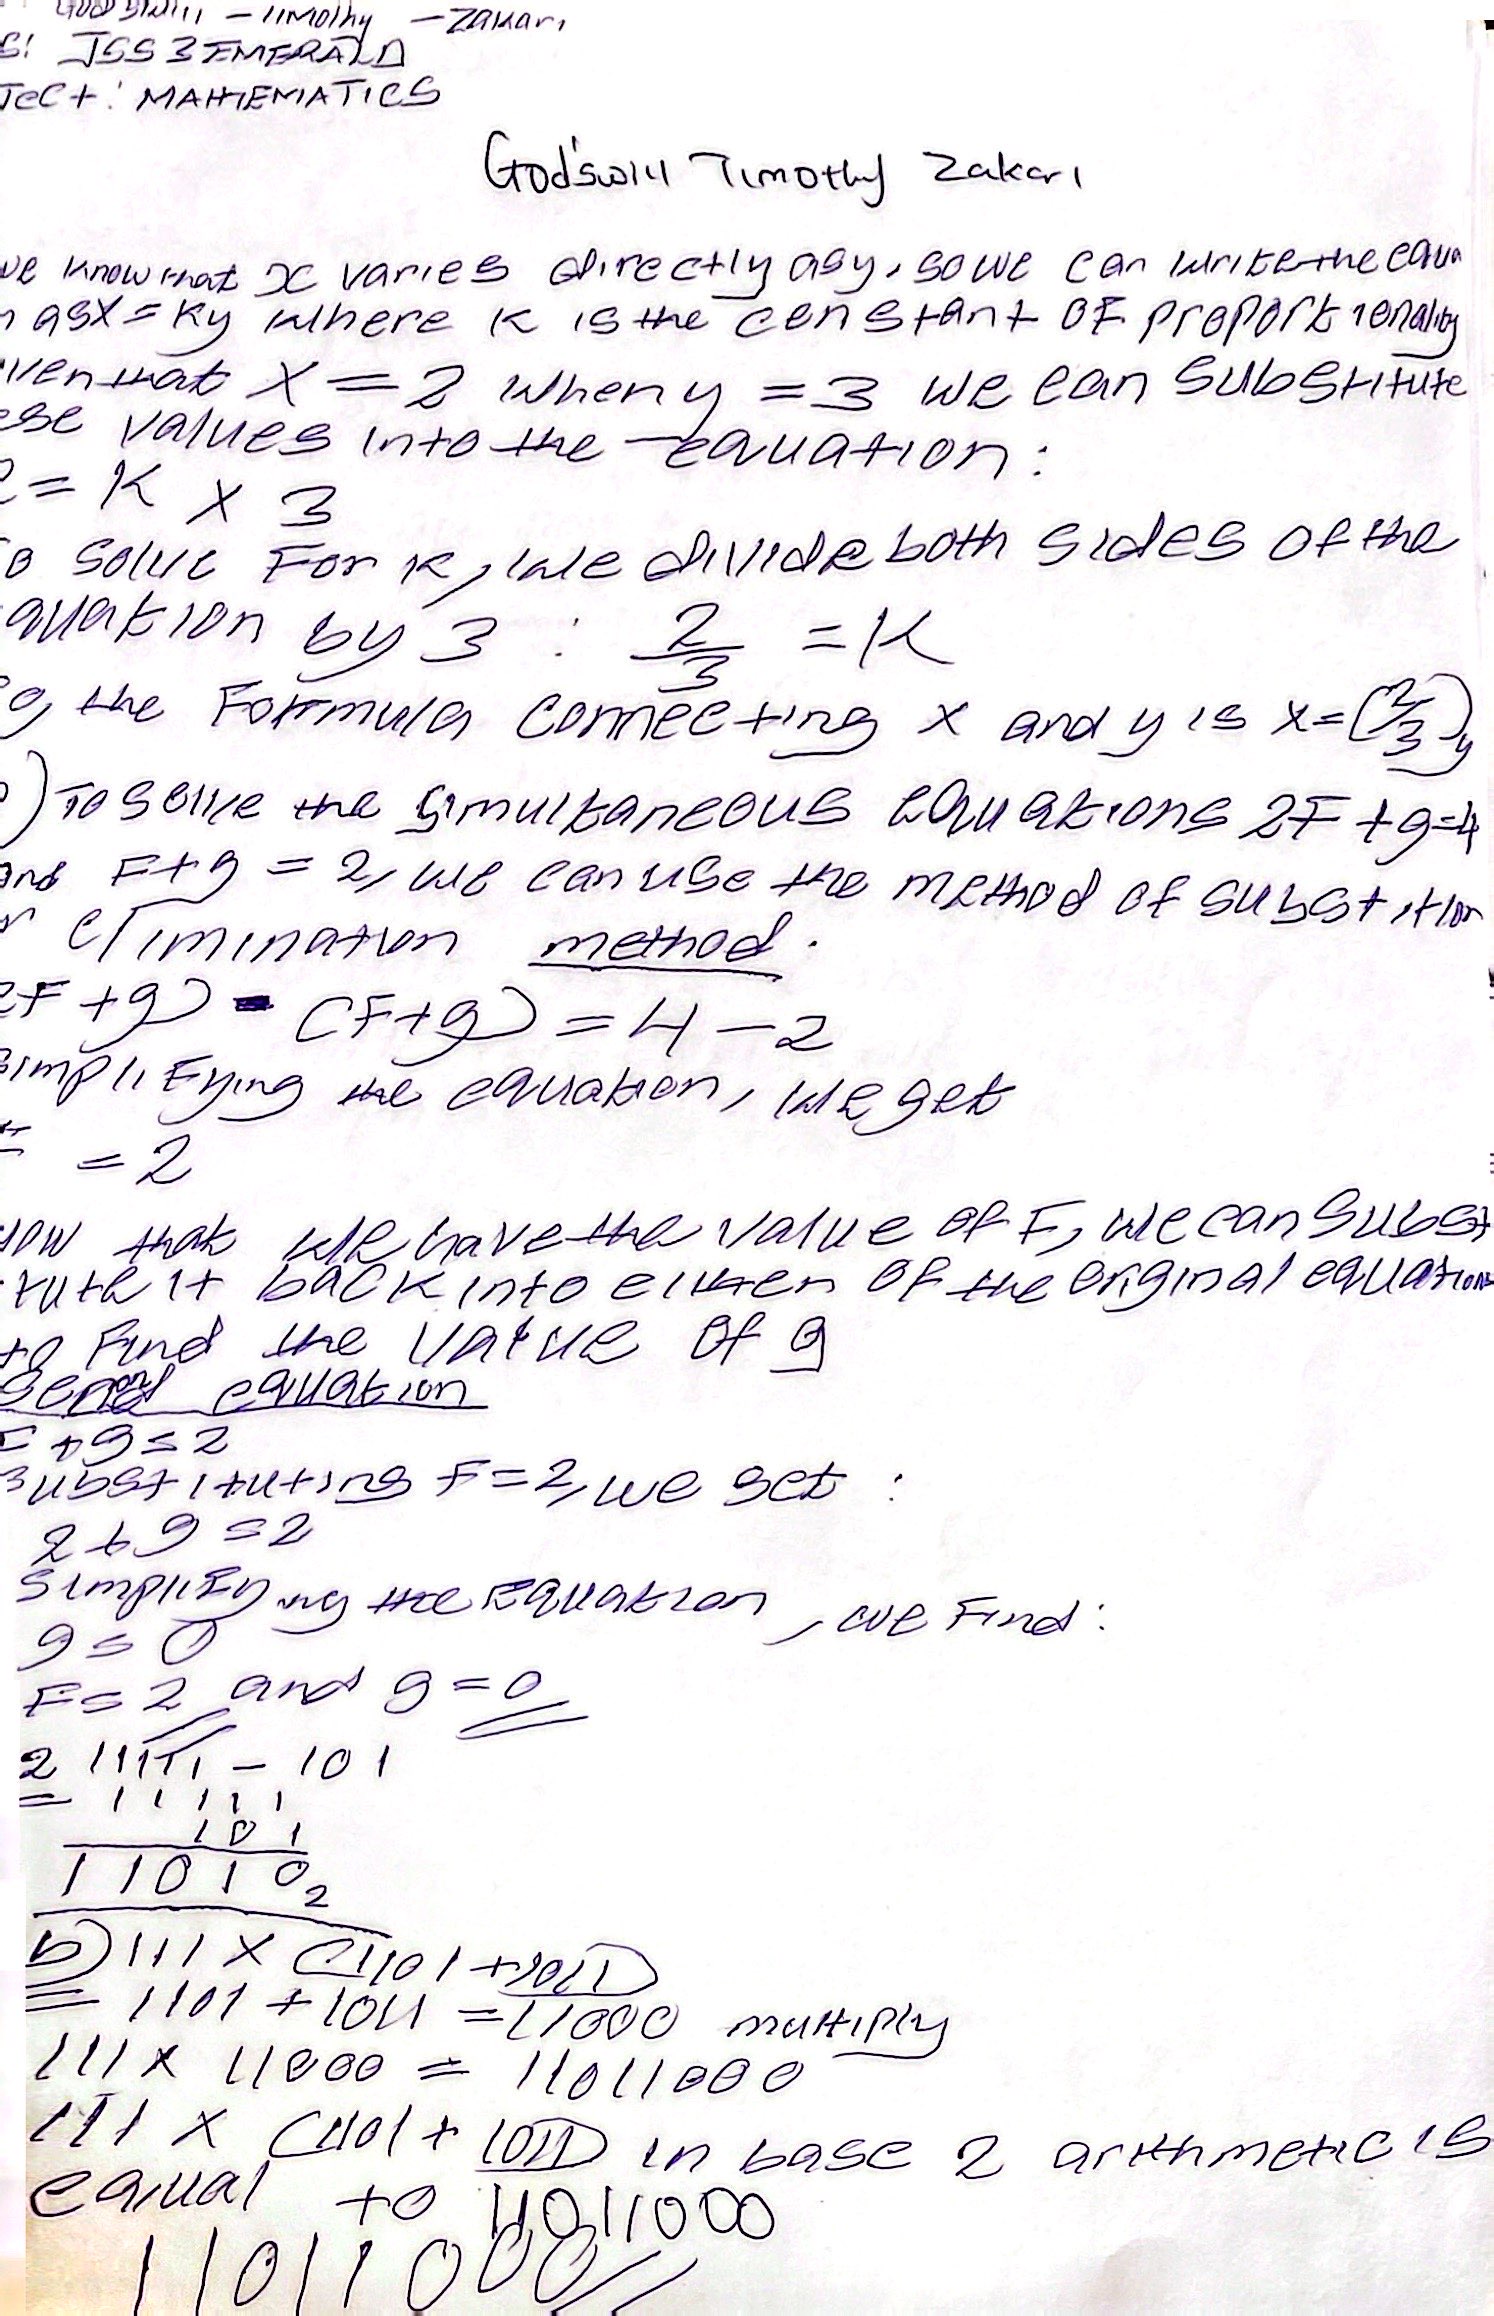 Godswill - Timothy - Zakari
S: JSS 3 EMERALD
JECT: MATHEMATICS
God'swill Timothy Zakari
we know that x varies directly as y, so we can write the equa
n as x = ky where k is the constant of proportionality
iven that x = 2 when y = 3 we can substitute
ese values into the equation:
2 = K x 3
o solve for k, we divide both sides of the
quation by 3 : 2/3 = K
o, the formula connecting x and y is x = (2/3)y
) To solve the simultaneous equations 2F + g = 4
and F + g = 2, we can use the method of substition
r elimination method.
2F + g) - (F + g) = 4 - 2
simplifying the equation, we get
F = 2
Now that we have the value of F, we can subst
itute it back into either of the original equations
to find the value of g
equation
F + g = 2
Substituting F = 2, we get :
2 + g = 2
Simplifying the equation, we find:
g = 0
F = 2 and g = 0
2 11111 - 101
= 11111
101
11010₂
b) 111 x (1101 + 1011)
= 1101 + 1011 = 11000 multiply
111 x 11000 = 11011000
111 x (1101 + 1011) in base 2 arithmetic is
equal to 11011000
11011000